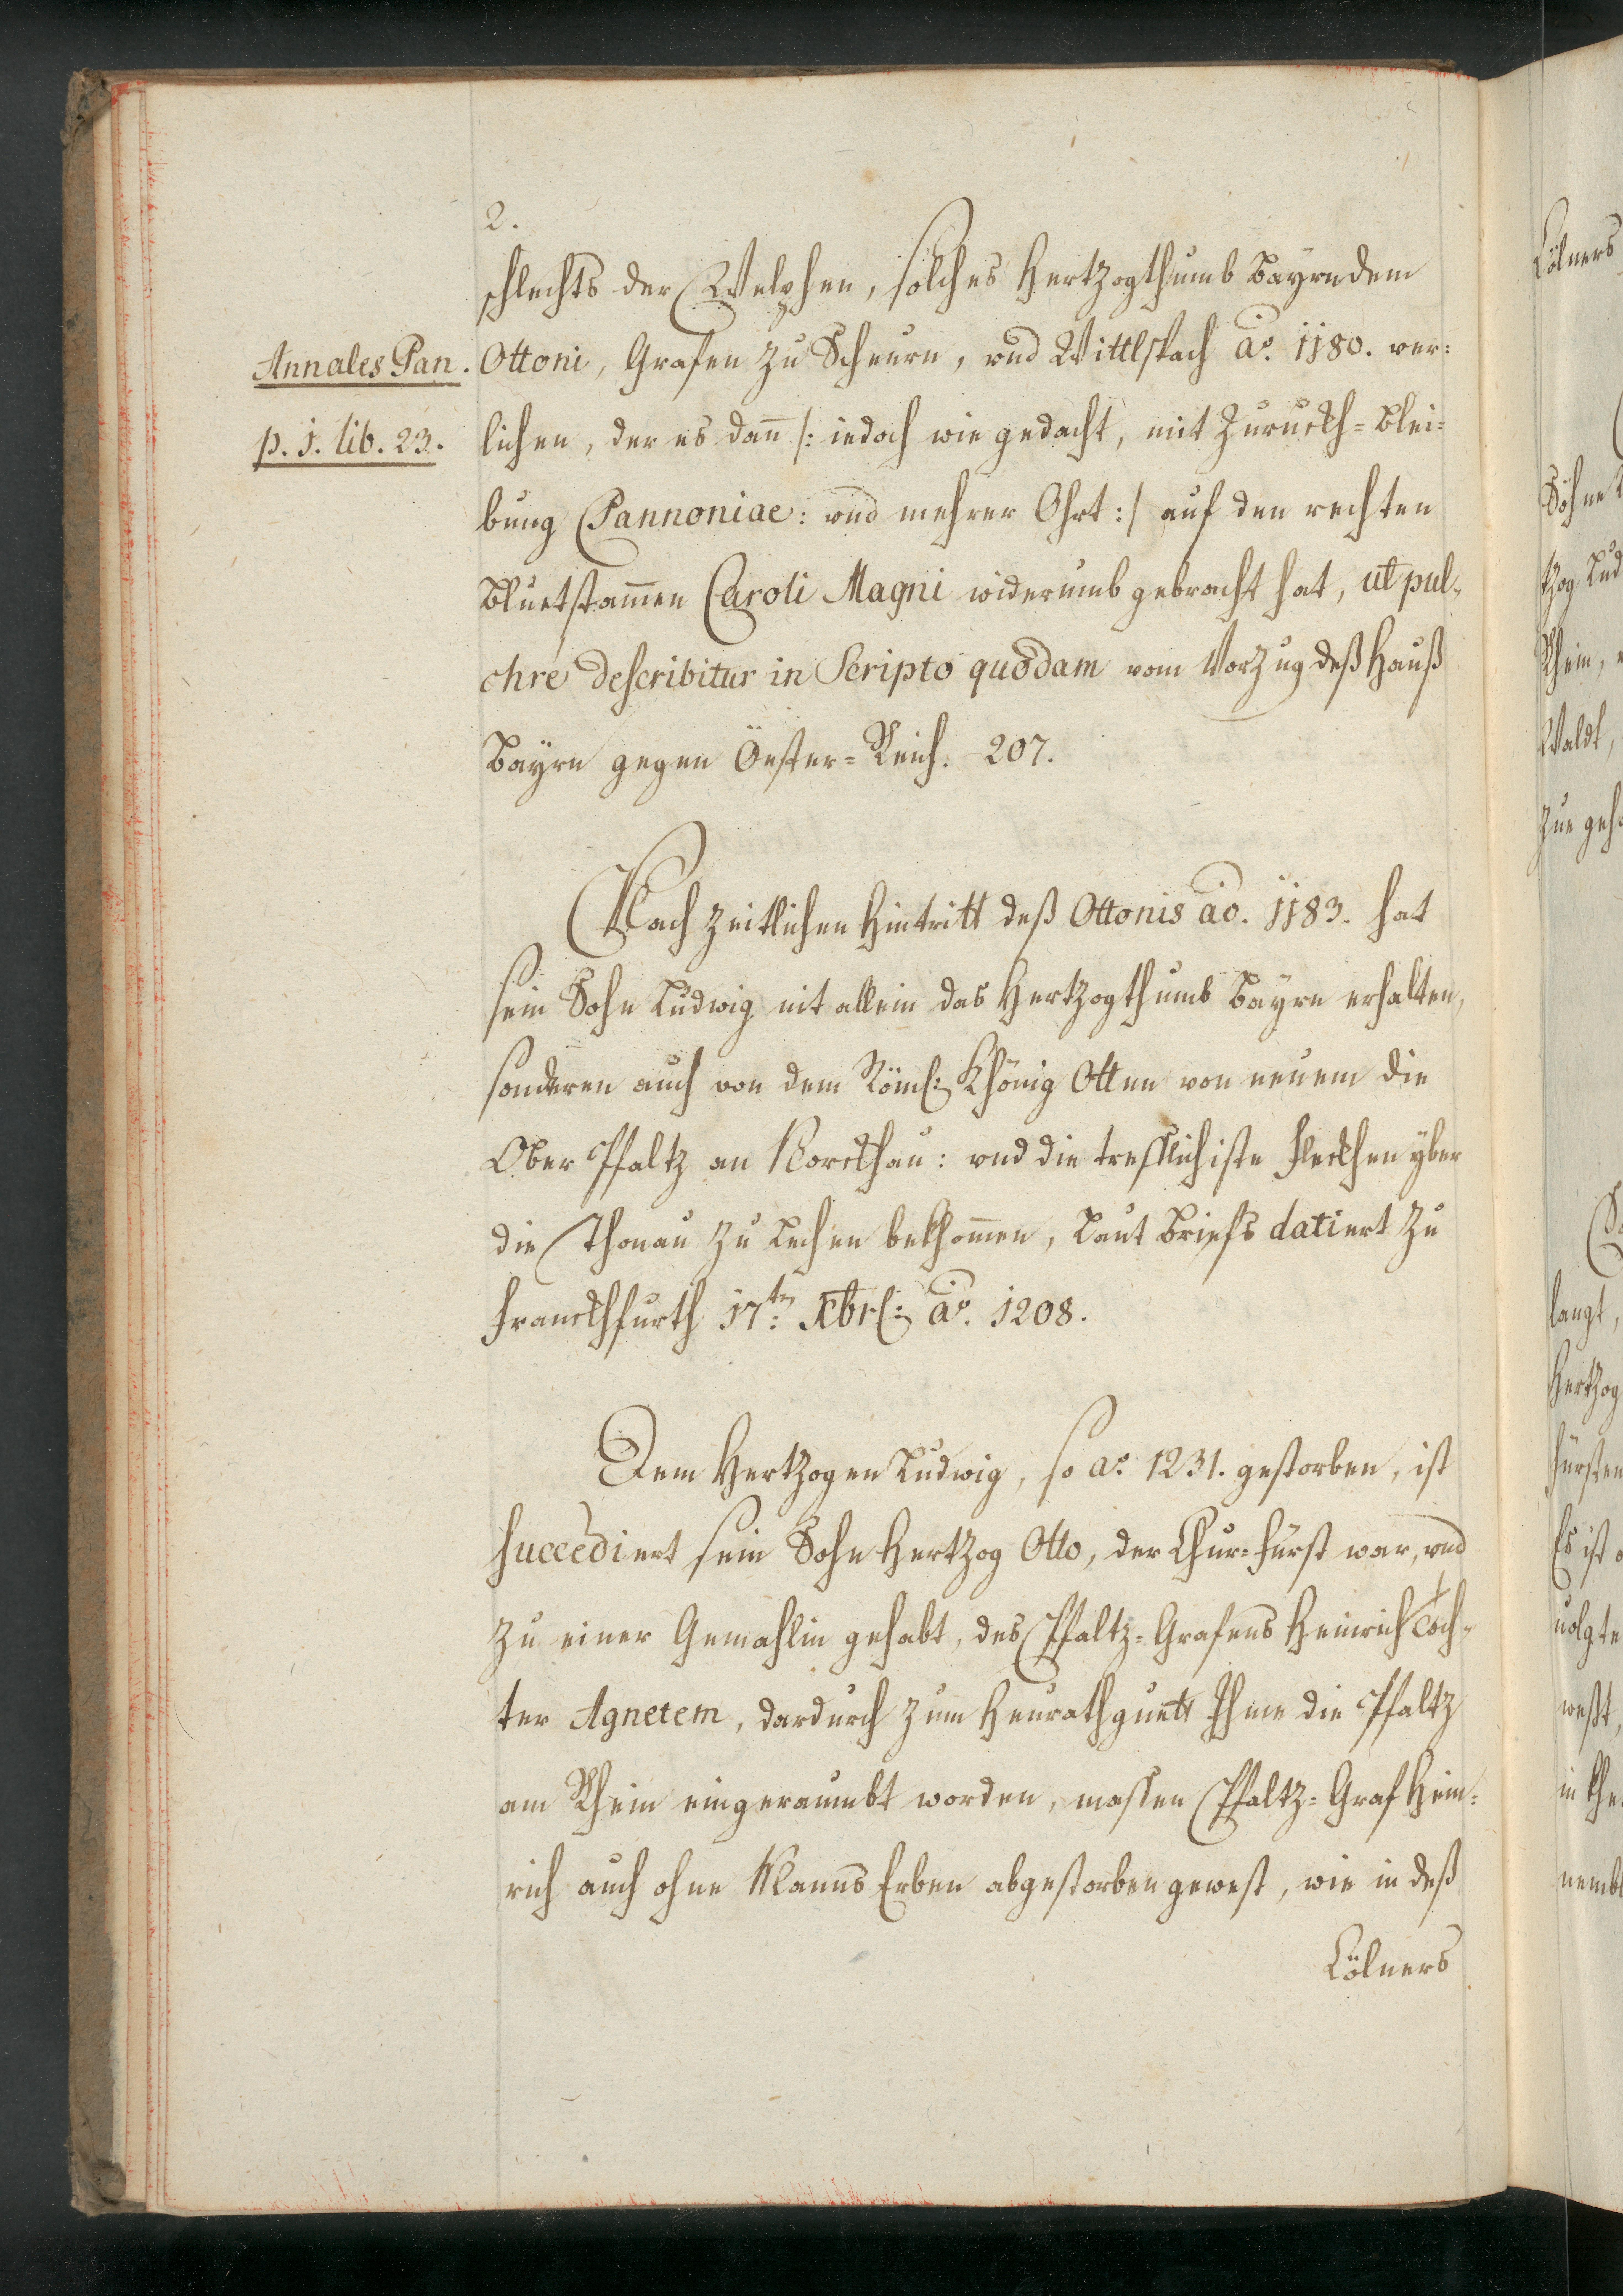 2.
schlechts der Welphen, solches Hertzogthumb Bayrn dem
Annales Pan.
Ottoni, Grafen zu Scheurn, vnd Wittlspach ao. 1180. ver:
p. 1. lib. 23.
lichen, der es dañ /: iedoch wie gedacht, mit Zuruckh=blei=
bung Pannoniae: vnd mehrer Ohrt :/ auf den rechten
Bluetstam̄en Caroli Magni widerumb gebracht hat, ut pul-
chre describitur in Scripto quodam vom Vorzug deß Hauß
Bayrn gegen Öester=Reich. 207.
Nach zeitlichen Hintritt deß Ottonis ao. 1183. hat
sein Sohn Ludwig nit allein das Hertzogthumb Bayrn erhalten,
sonderen auch von dem Röml: Khönig Otten von neuem die
Ober Pfaltz an Norckhau: vnd die trefflichiste Fleckhen yber
die Thonau zu Lechen bekhom̄en, Laut Briefs datiert zu
Franckhfurth 17tn: Xbrl: ao. 1208.
Dem Hertzogen Ludwig, so ao. 1231. gestorben, ist
succediert sein Sohn Hertzog Otto, der Chur=Fürst war, vnd
zu einer Gemahlin gehabt, des Pfaltz=Grafens Heinrich Toch-
ter Agnetem, dardurch zum Heurathguett Ihme die Pfaltz
am Rhein eingeraumbt worden, massen Pfaltz=Graf Hein=
rich auch ohne Manns Erben abgestorben gewest, wie in deß
Cölners
Cölners
Söhne
tzog Lud
Rhein,
Waldt,
zue geh
langt,
Hertzog
Fürsten
Es ist
uolgte
west,
in khe
nemb